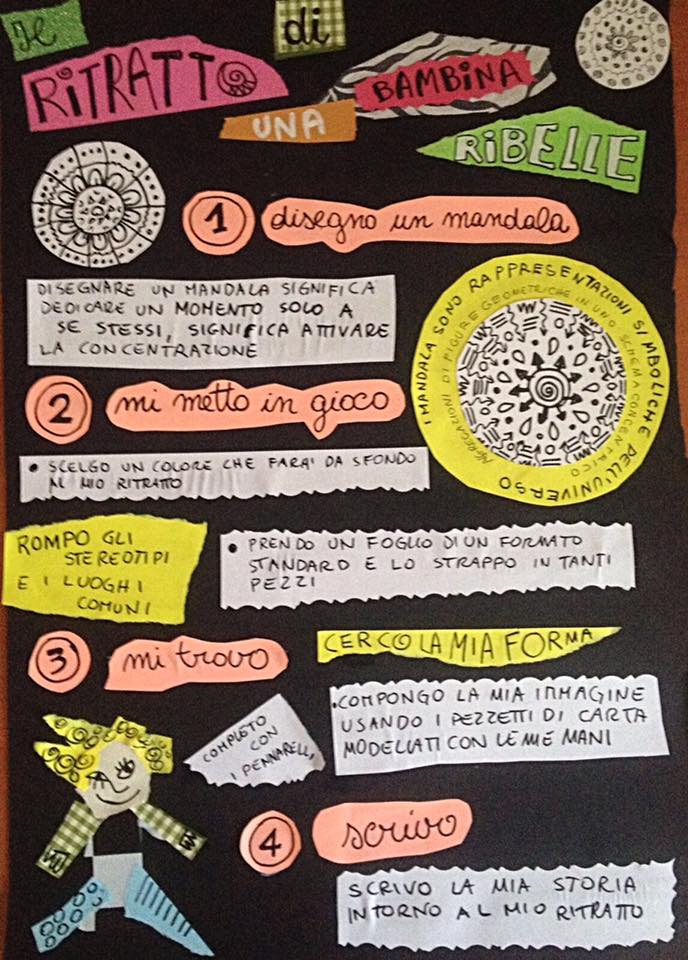 Il
di
RITRATTO
BAMBINA
UNA
RIBELLE
1 disegno un mandala
DISEGNARE UN MANDALA SIGNIFICA
DEDICARE UN MOMENTO SOLO A
SE STESSI, SIGNIFICA ATTIVARE
LA CONCENTRAZIONE
I MANDALA SONO RAPPRESENTAZIONI SIMBOLICHE DELL'UNIVERSO
AGGREGAZIONI DI FIGURE GEOMETRICHE IN UNO SCHEMA CONCENTRICO
2 mi metto in gioco
• SCELGO UN COLORE CHE FARA' DA SFONDO
AL MIO RITRATTO
ROMPO GLI
STEREOTIPI
E I LUOGHI
COMUNI
• PRENDO UN FOGLIO DI UN FORMATO
STANDARD E LO STRAPPO IN TANTI
PEZZI
3 mi trovo
CERCO LA MIA FORMA
• COMPONGO LA MIA IMMAGINE
USANDO I PEZZETTI DI CARTA
MODELLATI CON LE MIE MANI
COMPLETO
CON
I PENNARELLI
4 scrivo
SCRIVO LA MIA STORIA
INTORNO AL MIO RITRATTO